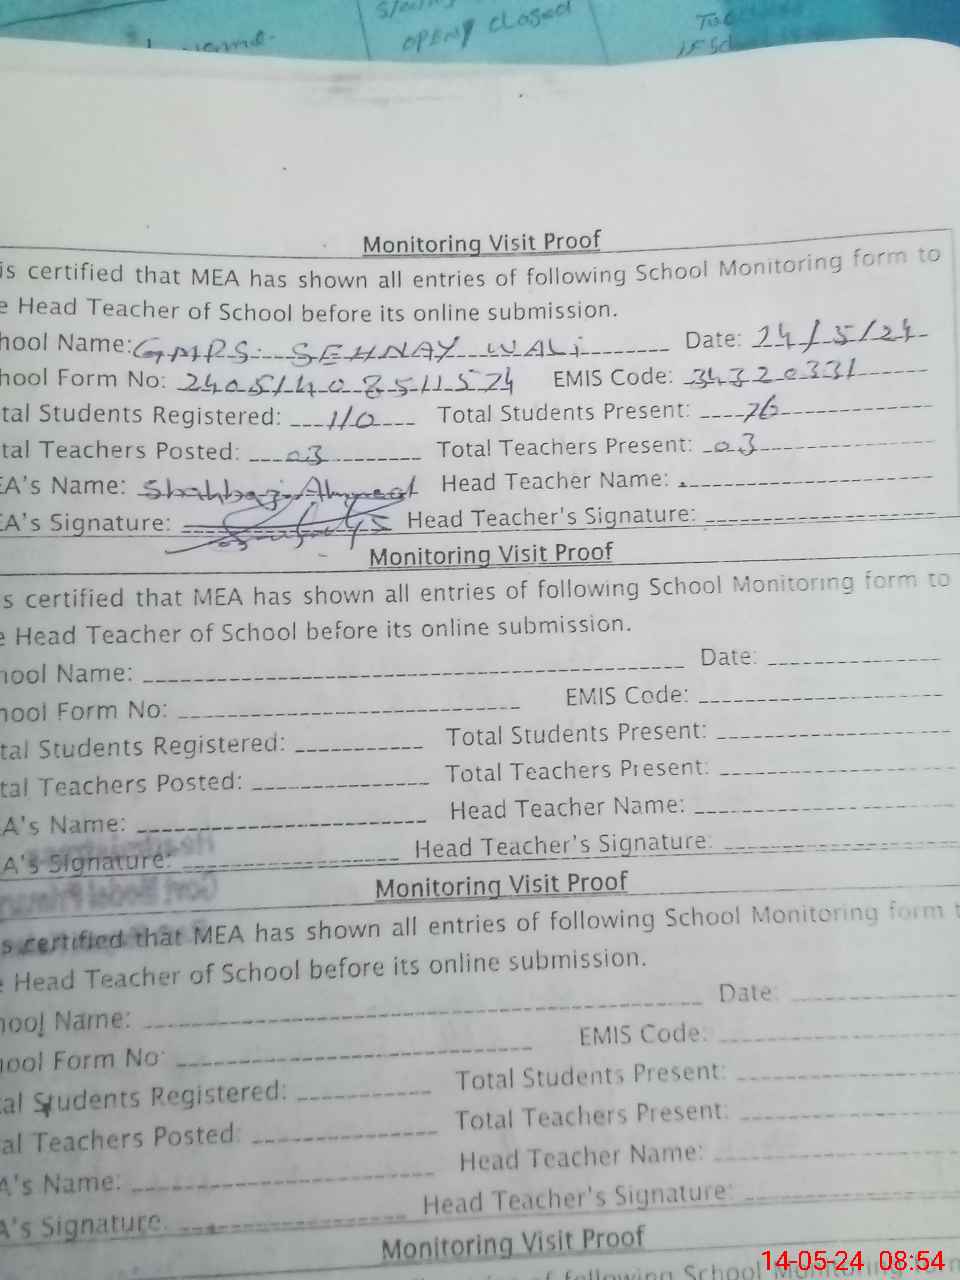 OPEN/ closed
Monitoring Visit Proof
is certified that MEA has shown all entries of following School Monitoring form to
e Head Teacher of School before its online submission.
hool Name: GMPS SEHNAY WALi Date: 24/5/24
hool Form No: 24051408511524 EMIS Code: 34320331
tal Students Registered: 110 Total Students Present: 76
tal Teachers Posted: 03 Total Teachers Present: 03
EA's Name: Shahbaz Ahmad Head Teacher Name:
EA's Signature: Head Teacher's Signature:
Monitoring Visit Proof
s certified that MEA has shown all entries of following School Monitoring form to
e Head Teacher of School before its online submission.
hool Name: Date:
hool Form No: EMIS Code:
tal Students Registered: Total Students Present:
tal Teachers Posted: Total Teachers Present:
A's Name: Head Teacher Name:
A's Signature: Head Teacher's Signature:
Monitoring Visit Proof
s certified that MEA has shown all entries of following School Monitoring form t
e Head Teacher of School before its online submission.
hool Name: Date:
hool Form No: EMIS Code:
tal Students Registered: Total Students Present:
al Teachers Posted: Total Teachers Present:
A's Name: Head Teacher Name:
A's Signature. Head Teacher's Signature:
Monitoring Visit Proof
of following School Monitoring
14-05-24 08:54